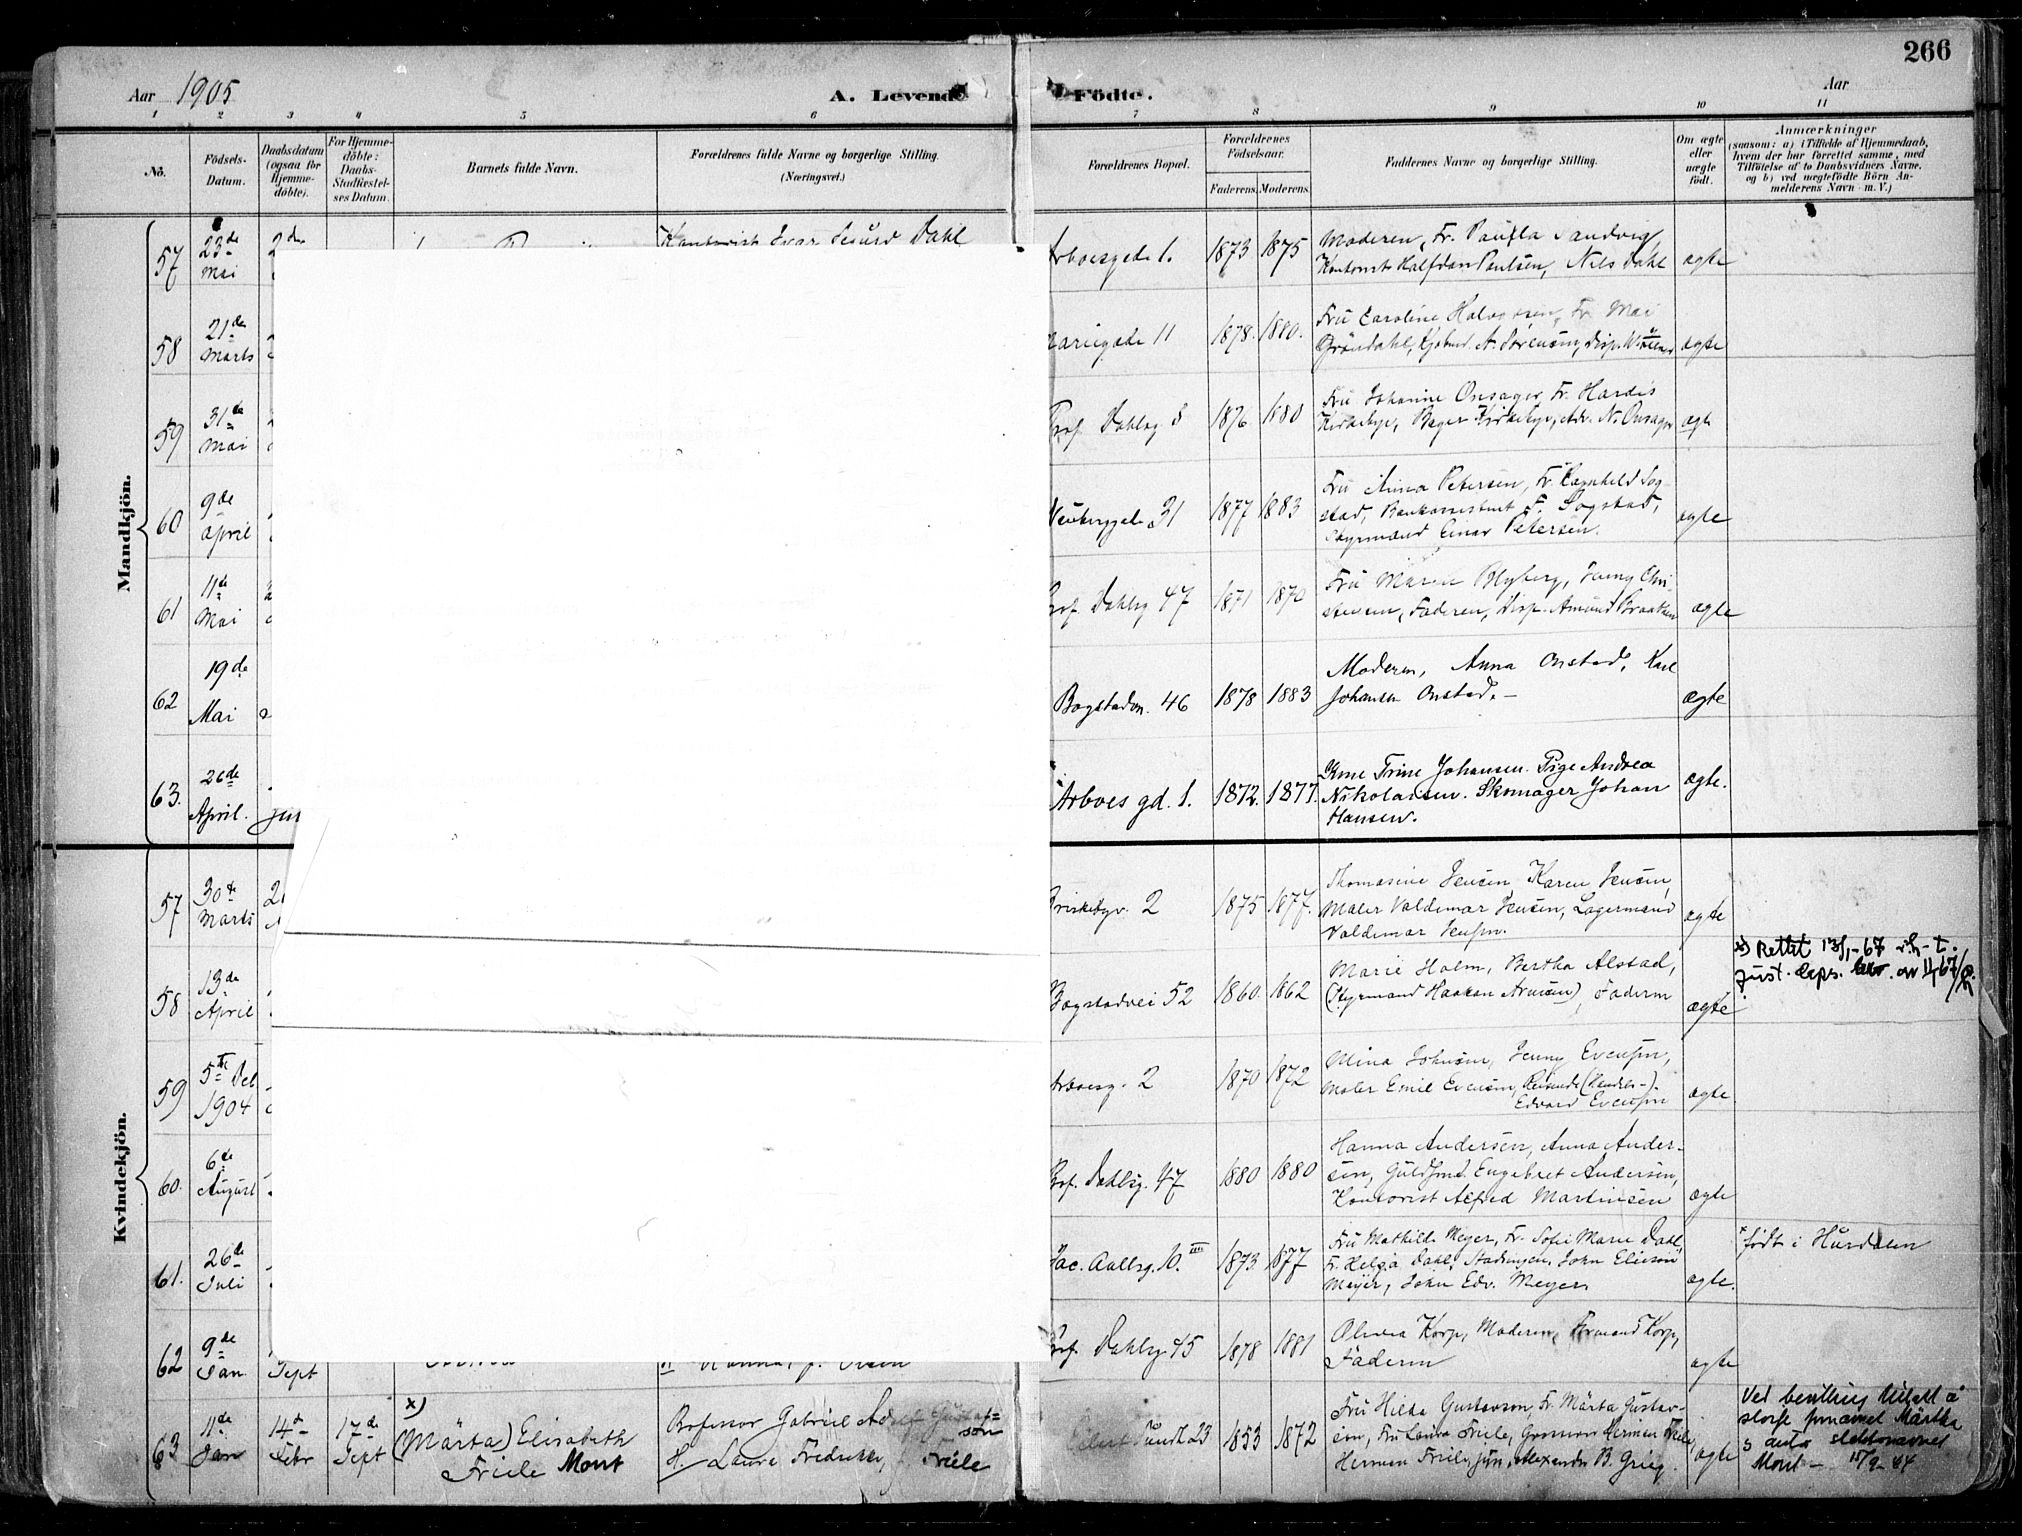 266
Aar 1905
A. Levende Födte.
Aar
1 2 3 4 5 6 7 8 9 10 11
No.
Födsels-
Datum.
Daabsdatum
(ogsaa för
Hjemme-
döbte).
For Hjemme-
döbte:
Daabs-
Stadfæstel-
ses Datum.
Barnets fulde Navn.
Forældrenes fulde Navne og borgerlige Stilling.
(Næringsvei.)
Forældrenes Bopæl.
Forældrenes
Födselsaar.
Faderens. Moderens.
Faddernes Navne og borgerlige Stilling.
Om ægte
eller
uægte
födt.
Anmærkninger
(saasom: a) i Tilfælde af Hjemmedaab,
hvem der har forrettet samme, med
Tilföielse af to Daabsvidners Navne,
og b) ved uægtefödte Börn An-
melderens Navn m. V.)
Mandkjön.
57 23de Mai 2de
Kontorist Ivar Dahl
Arboesgade 1. 1873 1875
Moderen, Fr. Paula Sandvig,
Kontorist Halfdan Paulsen, Nils Dahl
ægte
58 21de Marts
11 1878. 1880.
Fru Caroline Halvorsen, Fr. Mai
Gröndahl, A. Sörensen, Disp.
ægte
59 31de Mai
Prof. Dahlsg 8 1876 1880
Fru Johanne Onsager, Fr. Hardis
Kirkebye, Bager Kirkebye, N. Onsager
ægte
60 9de April
21 1877 1883
Fru Anna Petersen, Fr. Ragnhild Sog-
stad, Bankassistent F. Sogstad,
Styrmand Einar Petersen.
ægte
61 11te Mai
Prof. Dahlsg 47 1871 1870
Fru Maren Blyberg, Jenny Chri-
stensen, Faderen, Disp. Amund Braathen
ægte
62 19de Mai
Bogstadvn. 46 1878 1883
Moderen, Anna Onstad, Karl
Johansen Onstad. –
ægte
63. 26de April.
Arboes gd. 1. 1872. 1877.
Kone Trine Johansen. Pige Andrea
Nikolaisen. Skomager Johan
Hansen.
ægte.
Kvindekjön.
57 30te Marts
Briskebyv. 2 1875 1877.
Thomasine Jensen, Karen Jensen,
Maler Valdemar Jensen, Lagermand
Valdemar Jensen.
ægte
58 13de April
Bogstadvei 52 1860. 1862
Marie Holm, Bertha Alstad,
(Styrmand Haakon Arnesen), Faderen
ægte
x) Rettet 13/1-67
Just. deps. av 4/1 67
59 5te Det 1904
Arboesg. 2 1870 1872
Mina Johnsen, Jenny Evensen,
Maler Emil Evensen, Reisende (Handels-).
Edvard Evensen
ægte
60. 6de August
Prof. Dahlsg. 47 1880 1880
Hanna Andersen, Anna Ander-
sen, Guldsmd. Engebret Andersen,
Kontorist Alfred Martinsen
ægte
61. 26de Juli
Jac. Aallsg. 10. III 1873 1877
Fru Mathilde Meyer, Fr. Sofie Marie Dahl,
Fr. Helga Dahl, Stadsingen. John Eliesön
Meyer, John Edv. Meyer.
ægte.
x födt i Hurdalen
62 9de Jan Sept
Prof. Dahlsg 45 1878 1881
Olivia Korp, Moderen, Armand Korp,
Faderen
ægte
63 11te Jan 14de Febr 17de Sept
x)
(Märta) Elisabeth
Friele Mont
Professor Gabriel Adolf Gustaf-
son
H. Laura Fredrikke, f. Friele
Eilert Sundt 23 1853 1872
Fru Hilda Gustavson, Fr. Märta Gustav-
son, Fru Laura Friele, Grosserer Herman Friele
Herman Friele jun, Alexander B. Grieg.
ægte
Ved bevilling tillatt å
sløife fornavnet Märtha
å anta slektsnavnet
Mont – 15/9-44